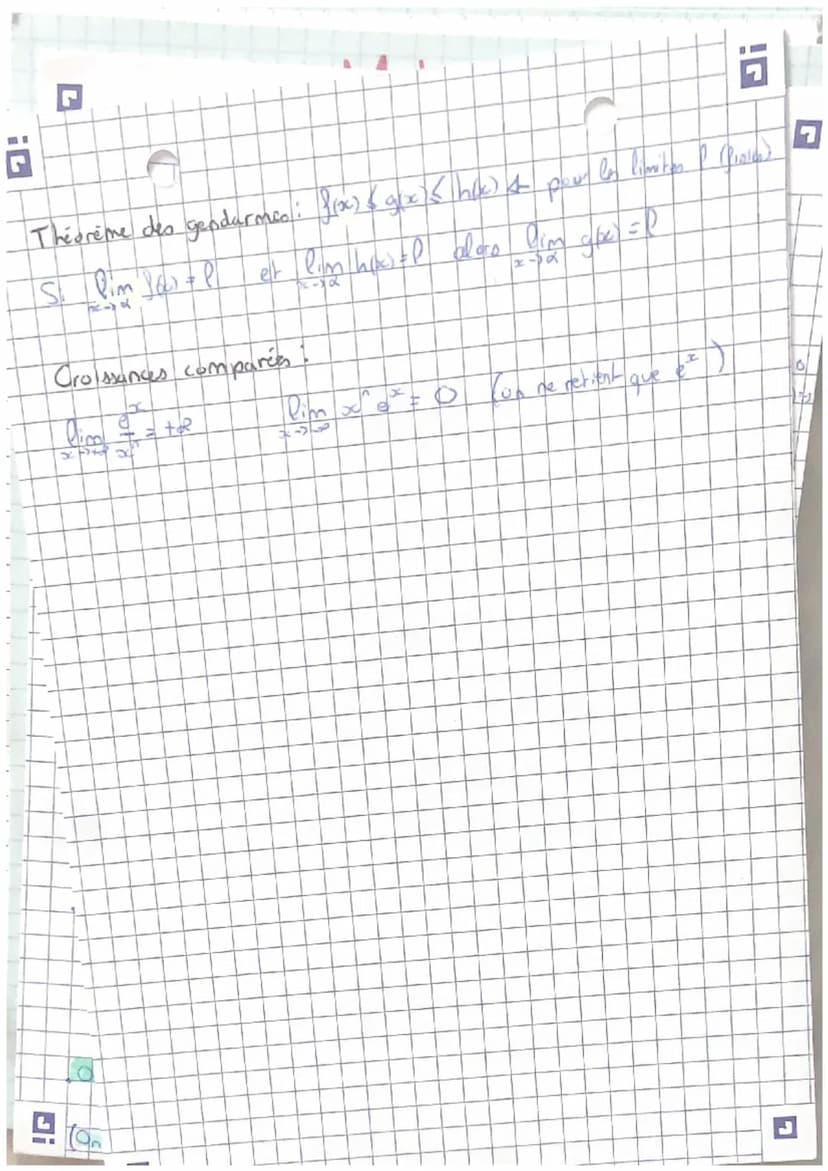 Théorème des gendarmes: f(x) ≤ g(x) ≤ h(x) pour les limites l (finies)
Si lim x→α f(x) = l et lim x→α h(x) = l alors lim x→α g(x) = l
Croissances comparées :
lim x→+∞ e^x/x^n = +∞ lim x→-∞ x^n e^x = 0 (on ne retient que e^x)
0
(On